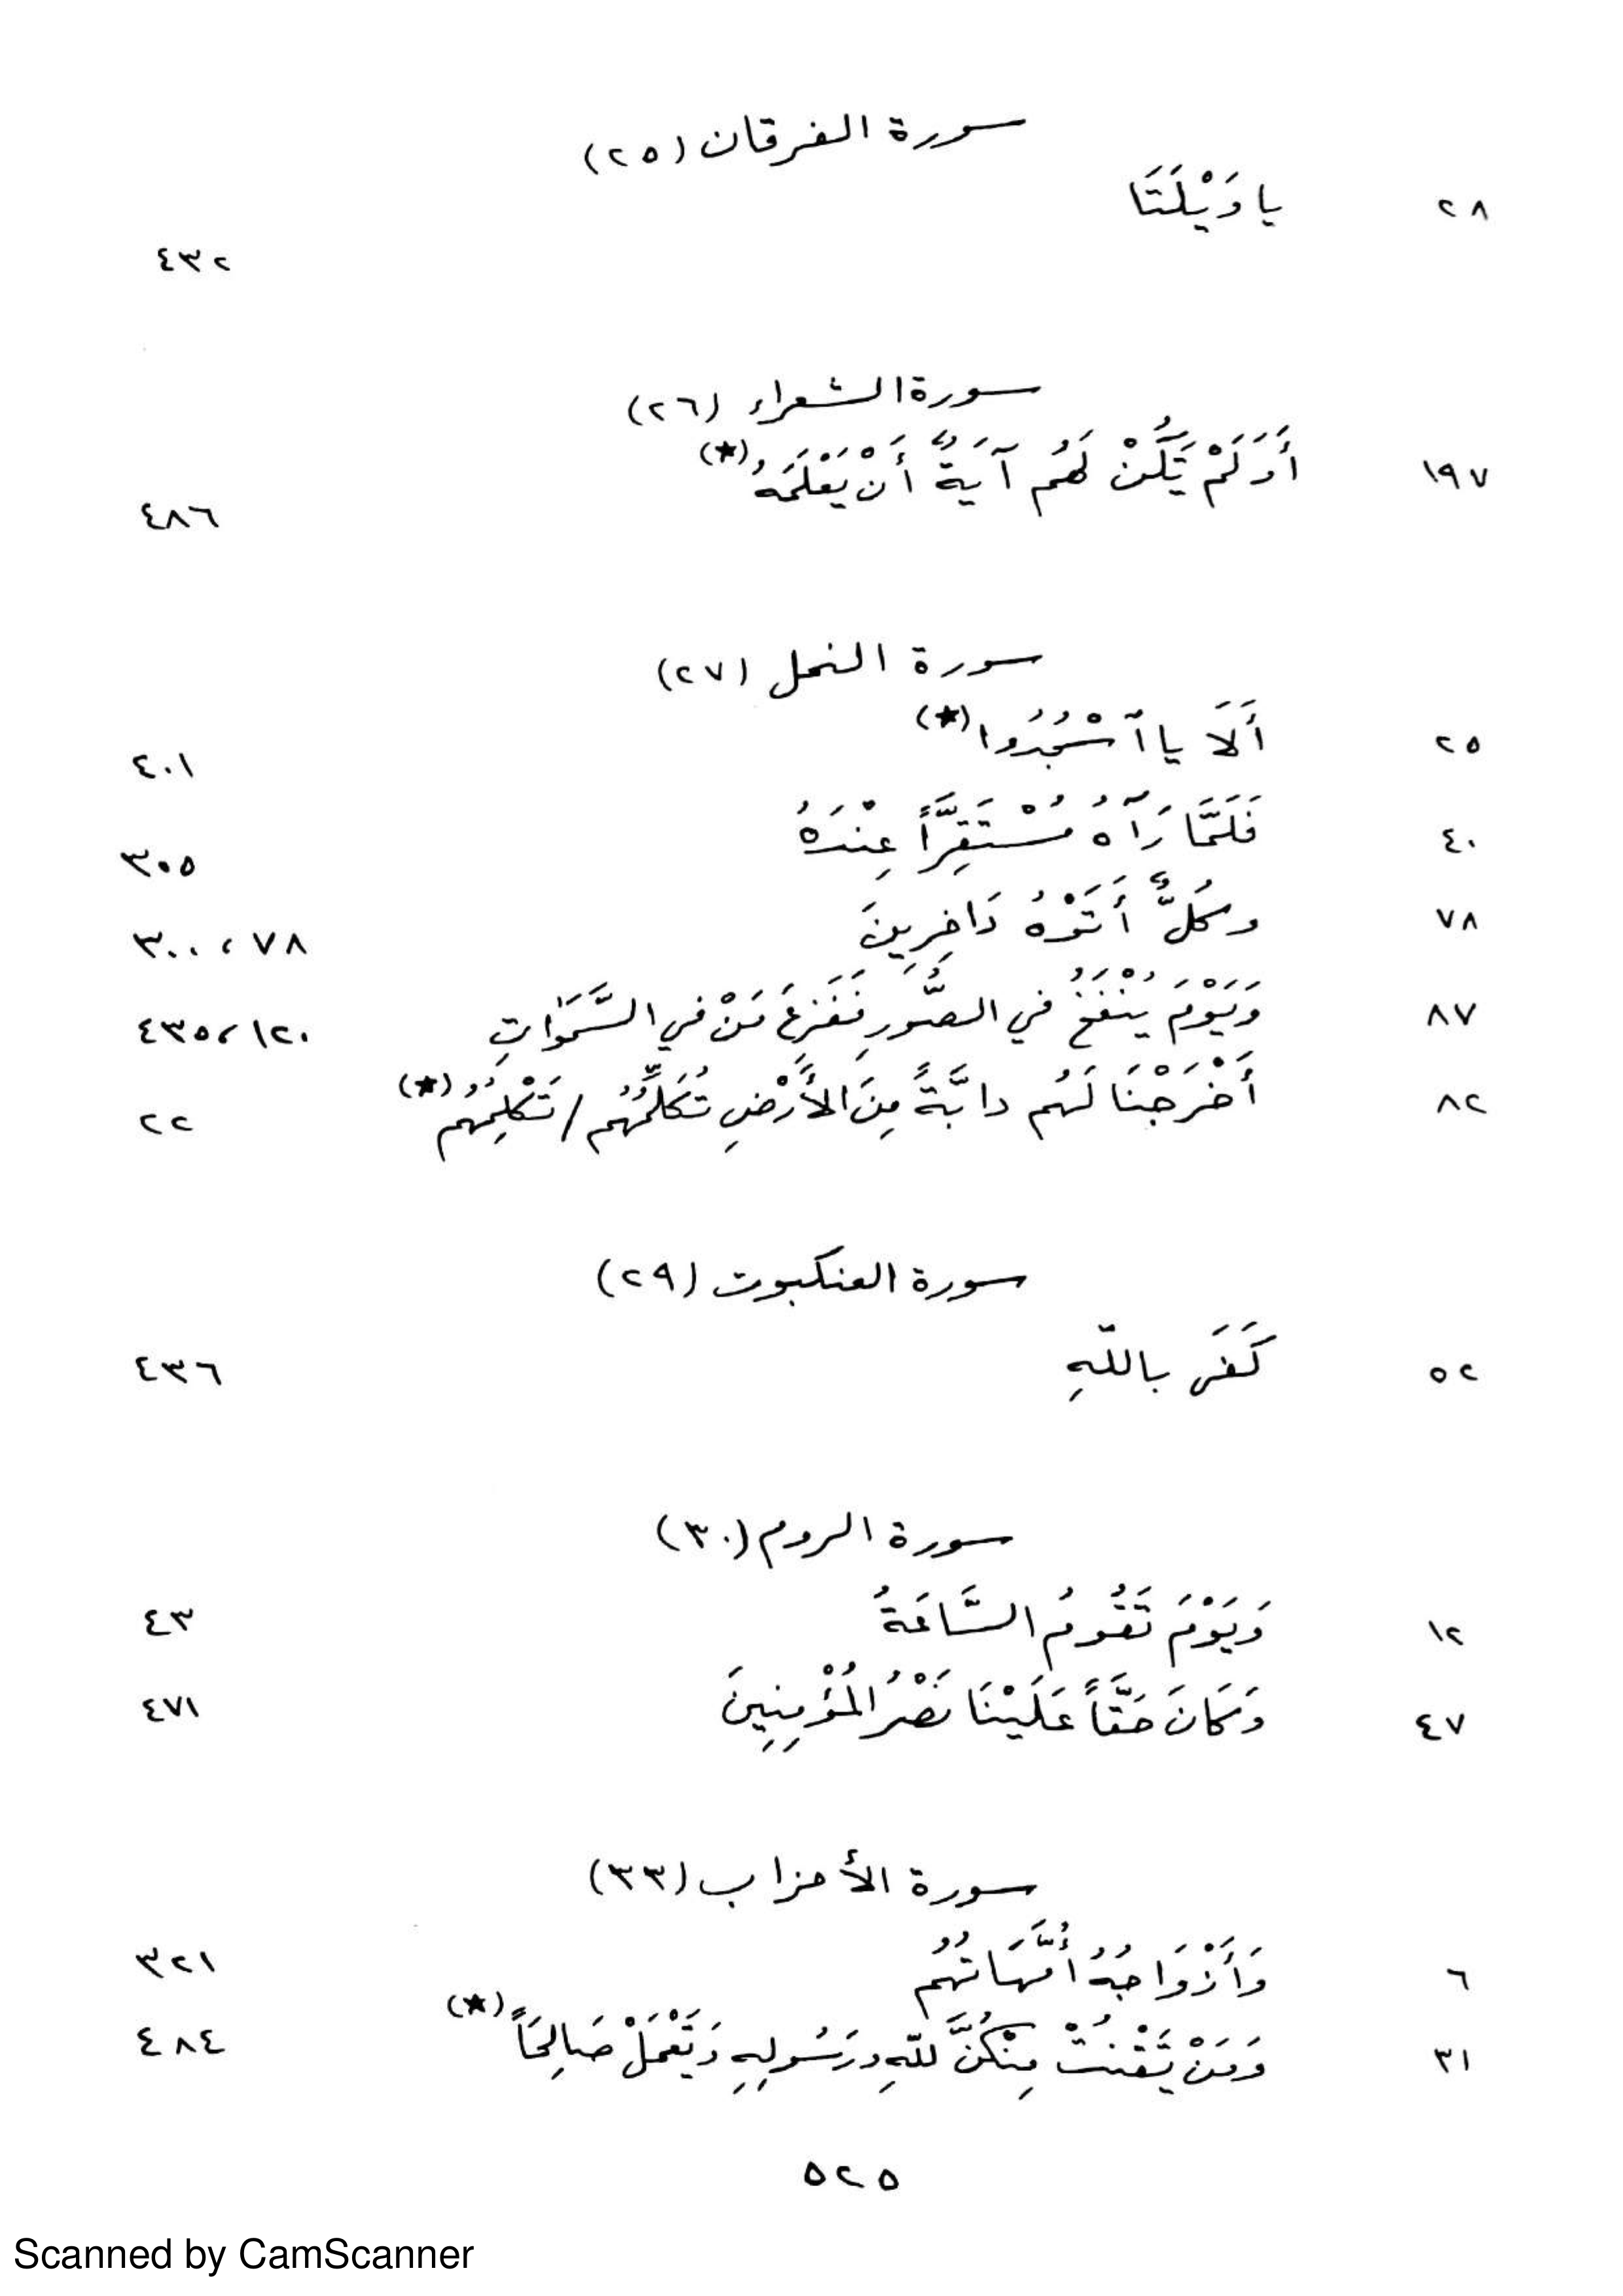 سورة الفرقان (٢٥)
٢٨ يا وَيْلَتَا
٤٣٢
سورة الشعراء (٢٦)
١٩٧ أَوَلَمْ يَكُنْ لَهُم آيَةٌ أَنْ يَعْلَمَهُ (★)
٤٨٦
سورة النمل (٢٧)
٢٥ أَلَا يا آسْجُدُوا (★) ٤٠١
٤٠ فَلَمَّا رَآهُ مُسْتَقِرَّاً عِنْدَهُ ٣٠٥
٧٨ وكُلٌّ أَتَوْهُ دَاخِرِينَ ٧٨ ، ٣٠٠
٨٧ وَيَوْمَ يُنْفَخُ في الصُّورِ فَفَزِعَ مَنْ في السَّمَوَاتِ ١٢٠ ، ٤٣٥
٨٢ أَخْرَجْنَا لَهُم دابَّةً مِنَ الأَرْضِ تُكَلِّمُهُم / تَكْلِمُهُم (★) ٢٢
سورة العنكبوت (٢٩)
٥٢ كَفَى باللّهِ ٤٣٦
سورة الروم (٣٠)
١٢ وَيَوْمَ تَقُومُ السَّاعَةُ ٤٣
٤٧ وَكَانَ حَقَّاً عَلَيْنَا نَصْرُ المُؤْمِنِينَ ٤٧١
سورة الأحزاب (٣٣)
٦ وَأَزْوَاجُهُ أُمَّهَاتُهُم ٣٢١
٣١ وَمَنْ يَقْنُتْ مِنْكُنَّ للّهِ ورَسُولِهِ وَتَعْمَلْ صَالِحَاً (★) ٤٨٤
٥٢٥
Scanned by CamScanner